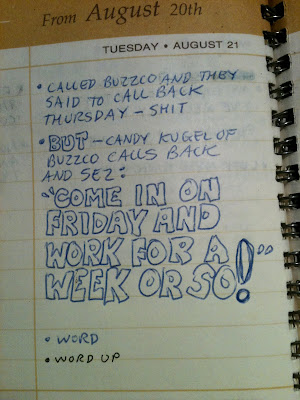 From August 20th
TUESDAY • AUGUST 21
• CALLED BUZZCO AND THEY
SAID TO CALL BACK
THURSDAY - SHIT
• BUT - CANDY KUGEL OF
BUZZCO CALLS BACK
AND SEZ:
"COME IN ON
FRIDAY AND
WORK FOR A
WEEK OR SO!"
• WORD
• WORD UP